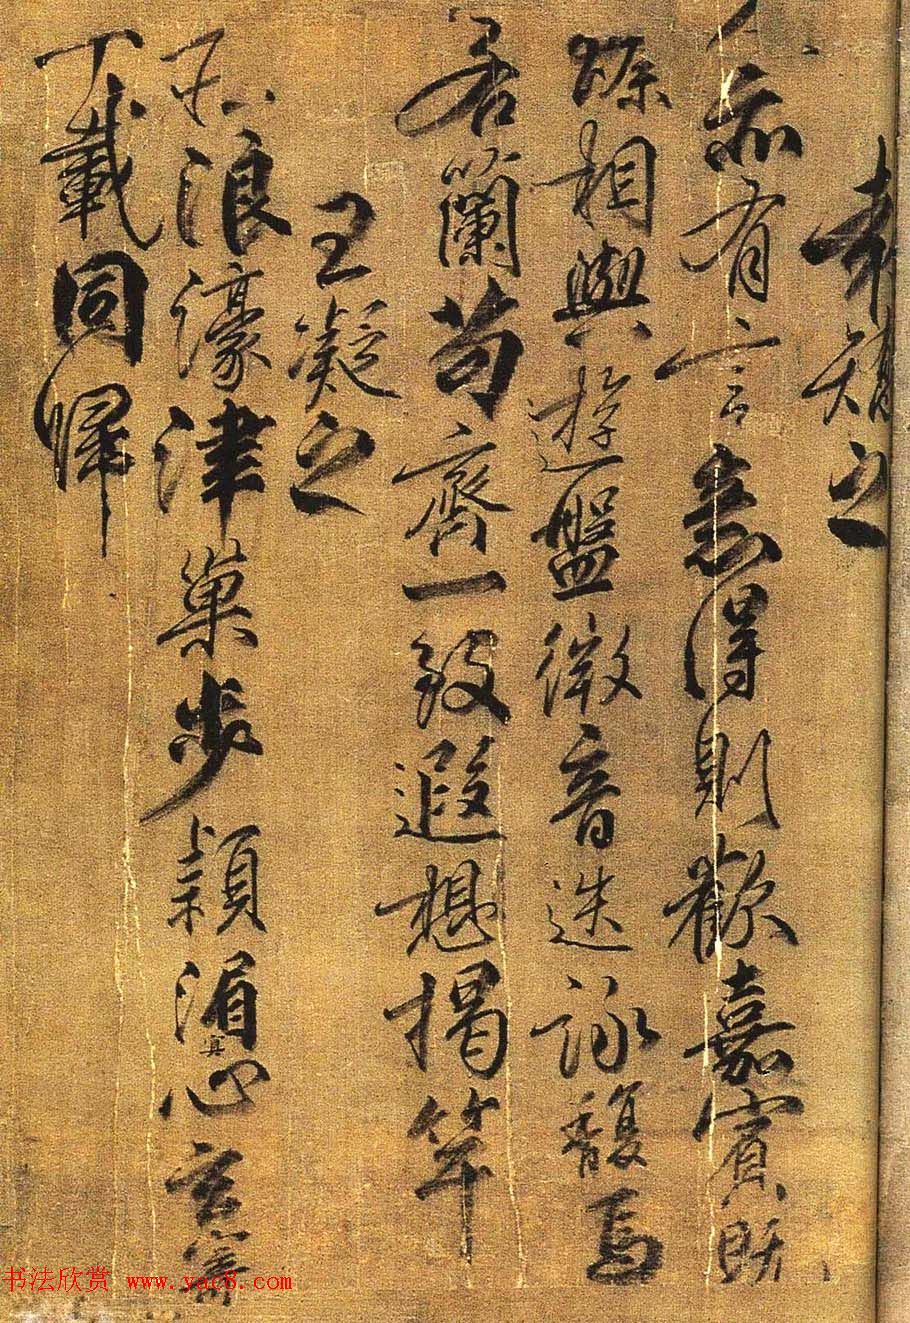 袁嶠之
人亦有言意得則歡嘉賓既
臻相與遊盤微音迭詠馥焉
若蘭苟齊一致遐想揭竿
王凝之
莊浪濠津巢步潁湄冥心玄寄
千載同歸
书法欣赏 www.yac8.com